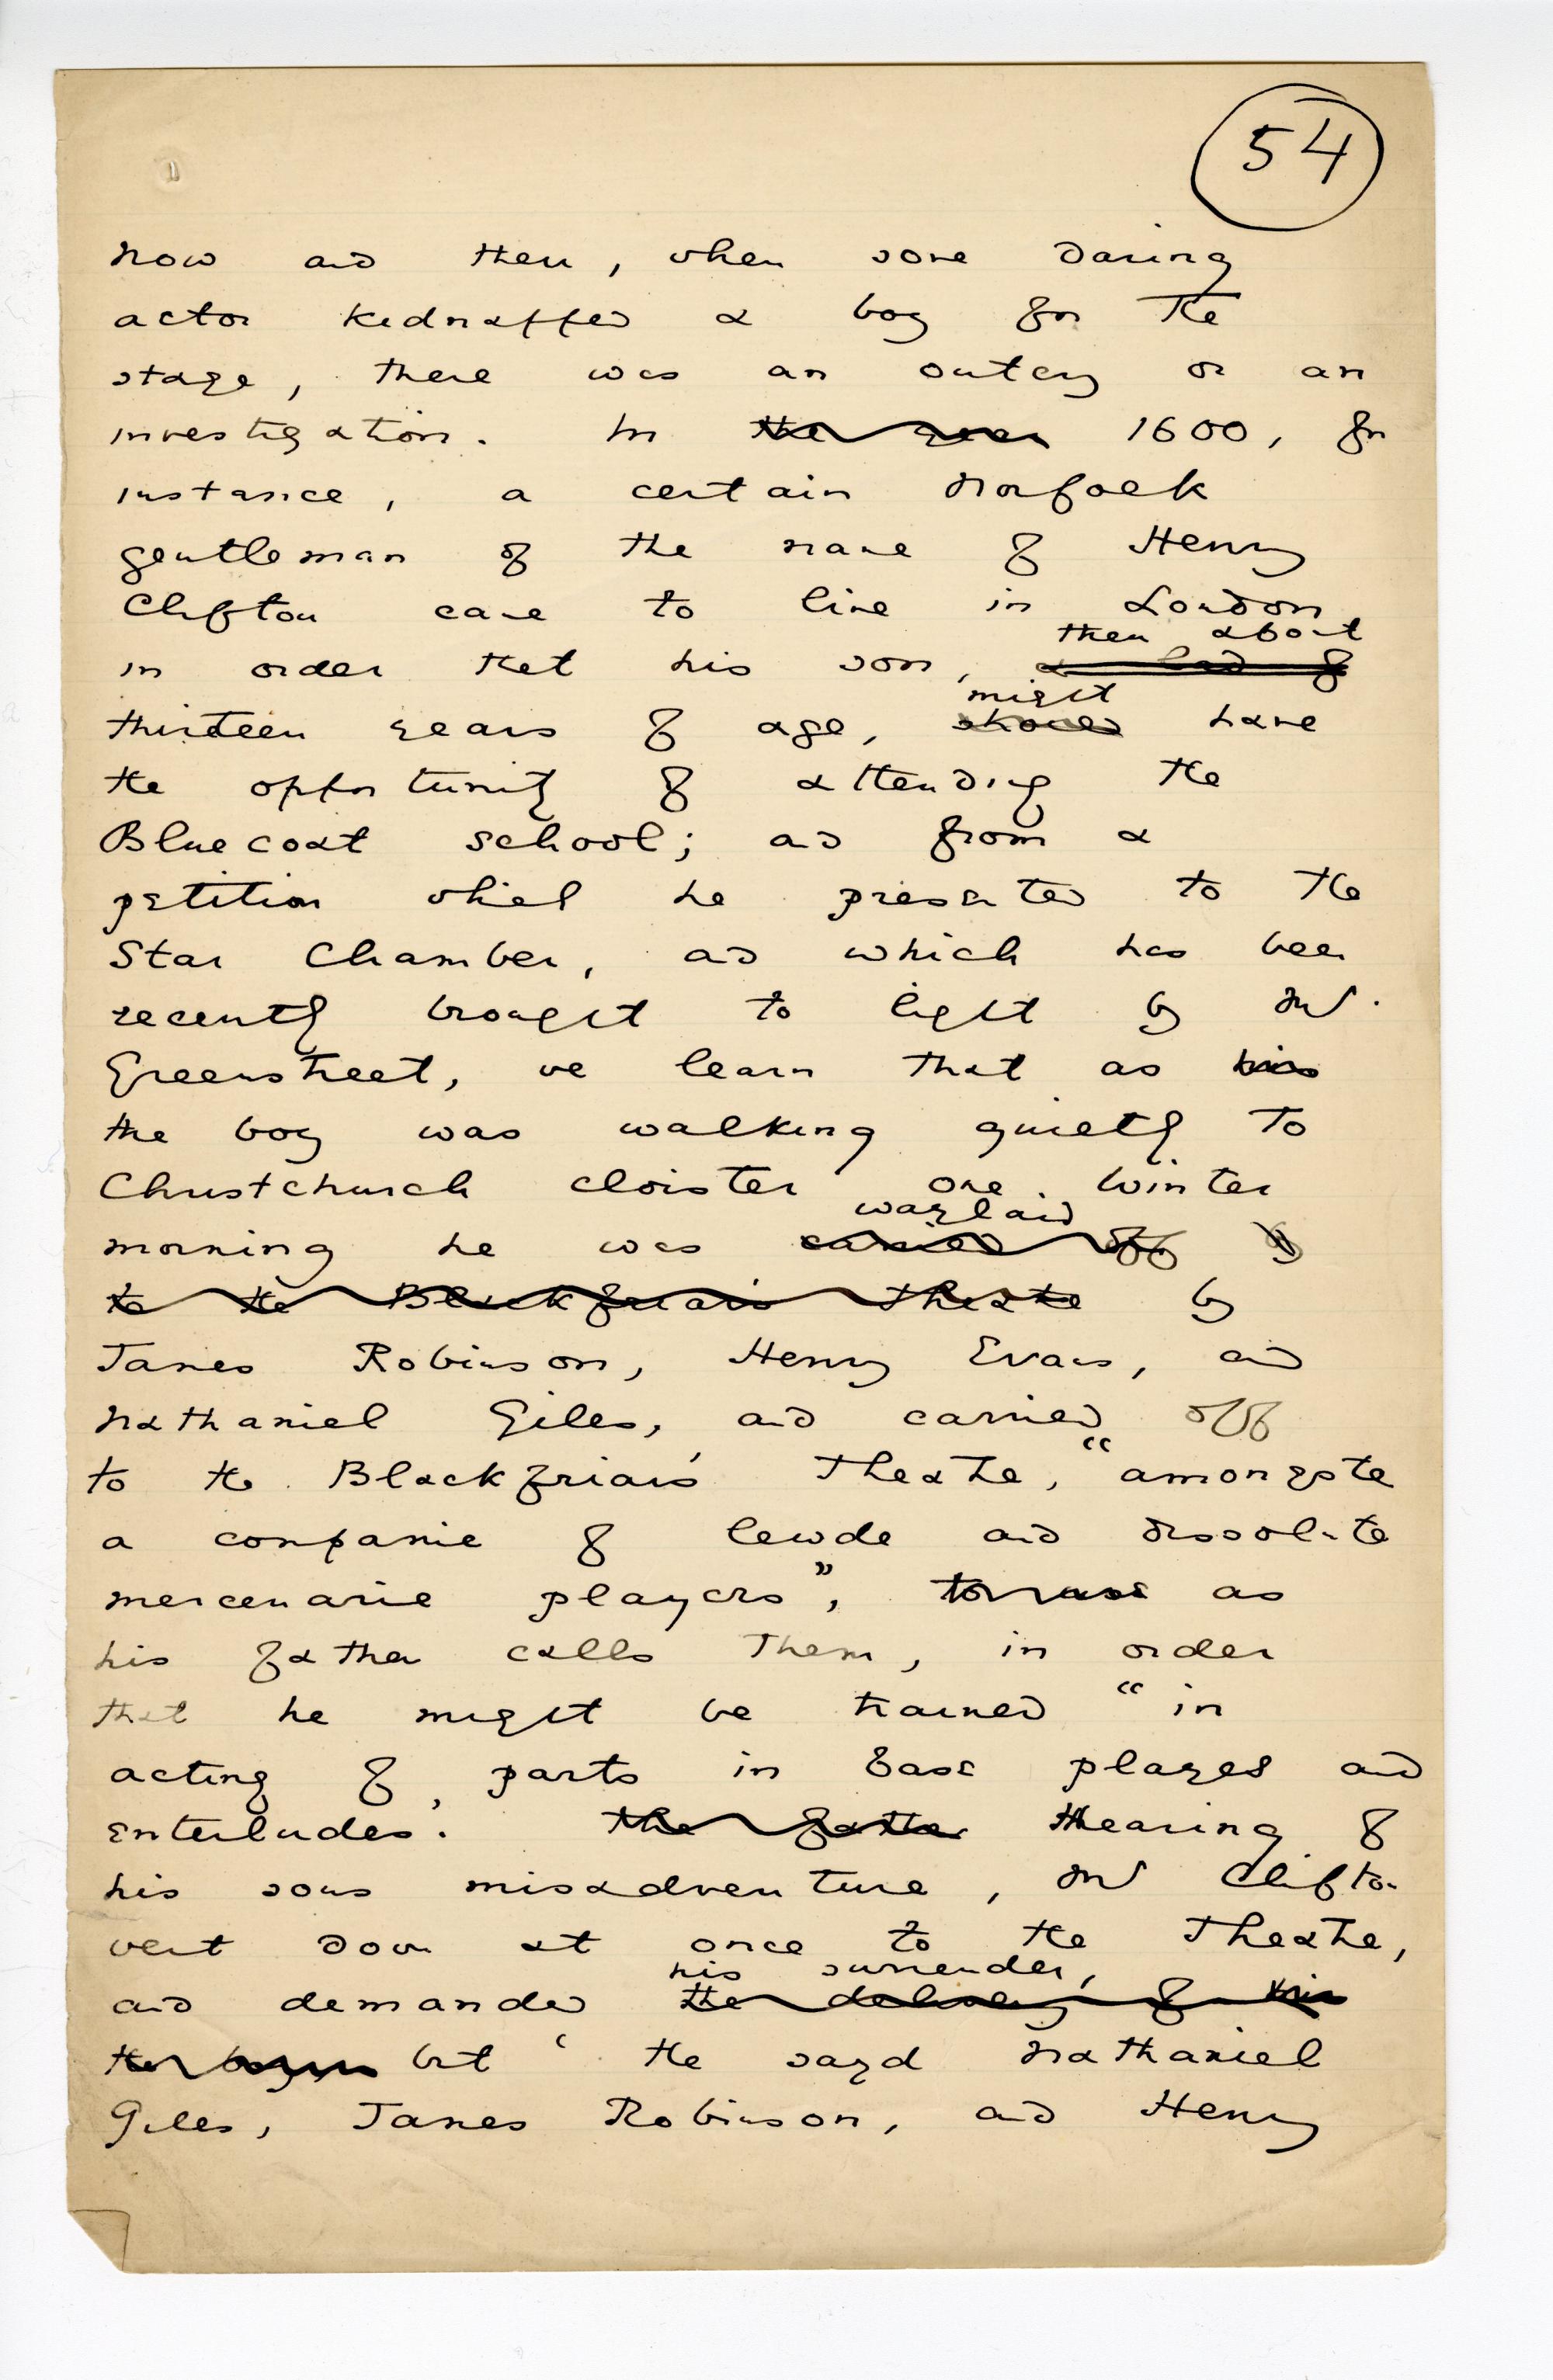 54
Now and then, when some daring
actor kidnapped a boy for the
stage, there was an outcry or an
investigation. In the year 1600, for
instance, a certain Norfolk
gentleman of the name of Henry
Clifton came to live in London
then about
in order that his son, a lad of
might
thirteen years of age, should have
the opportunity of attending the
Bluecoat school; and from a
petition which he presented to the
Star Chamber, and which has been
recently brought to light by Mr.
Greenstreet, we learn that as his
the boy was walking quietly to
Christchurch cloister one winter
waylaid
morning he was carried off
to the Blackfriars theatre by
James Robinson, Henry Evans, and
Nathaniel Giles, and carried off
to the Blackfriars' Theatre, "amongste
a companie of lewde and dissolute
mercenarie players", as
his father calls them, in order
that he might be trained "in
acting of parts in base playes and
enterludes'. The father Hearing of
his sons misadventure, Mr Clifton
went down at once to the Theatre,
his surrender,
and demanded the delivery of his
but ' the sayd Nathaniel
Giles, James Robinson, and Henry